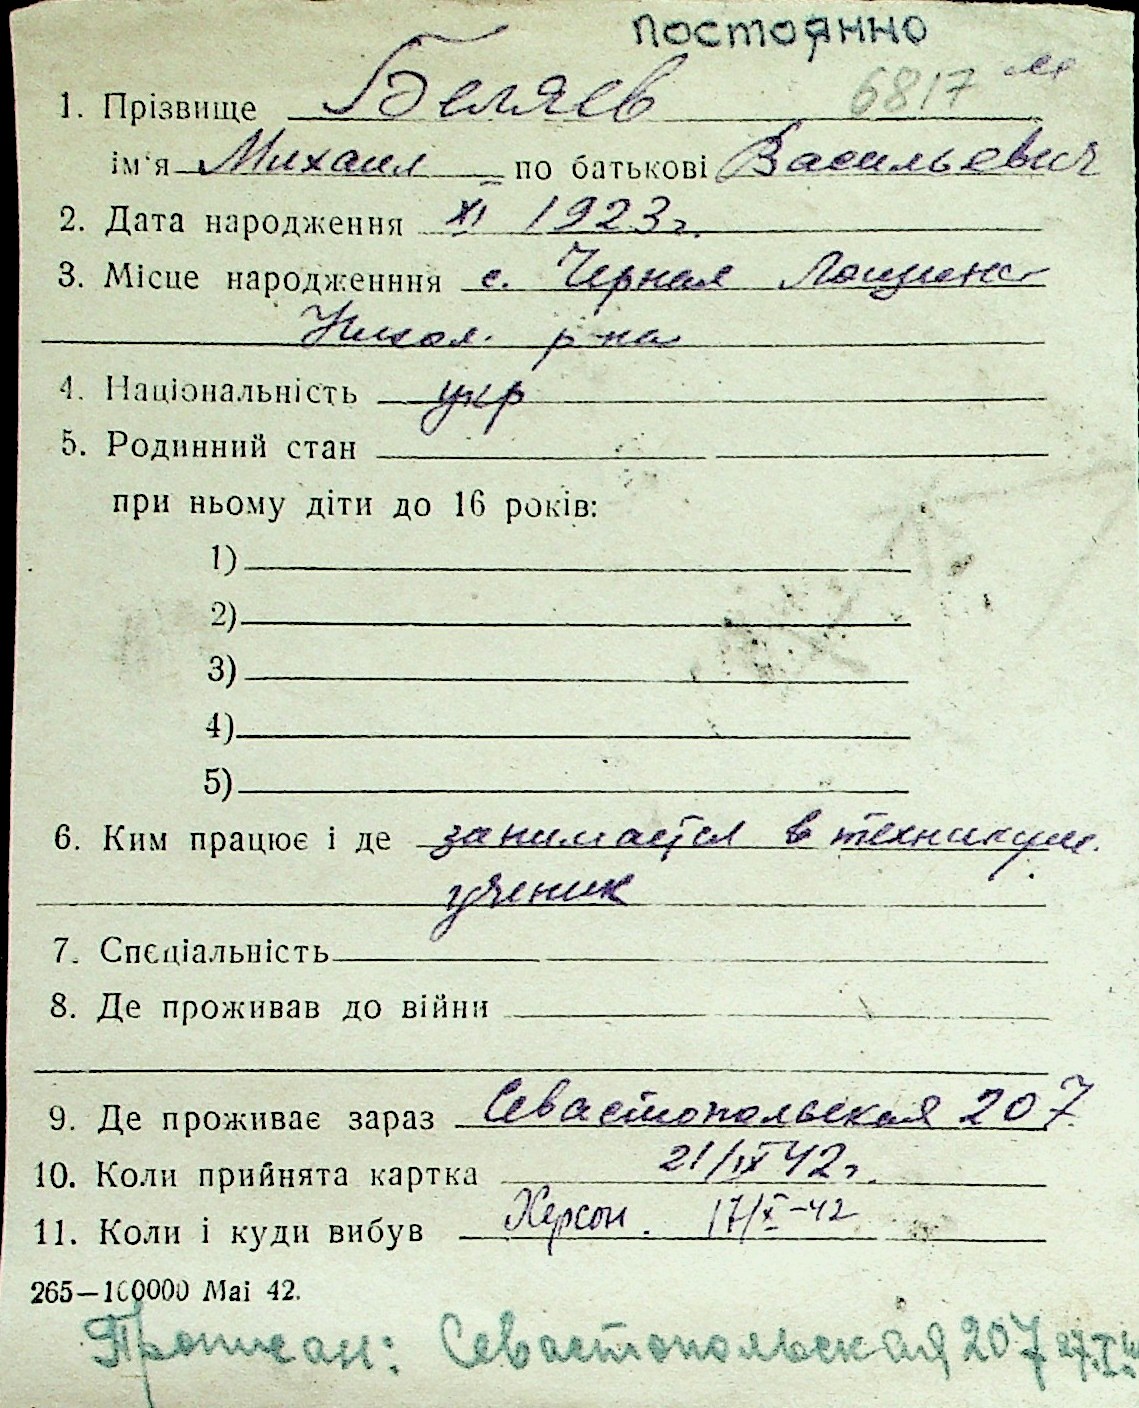 постоянно
6817
1. Прізвище Беляев
ім'я Михаил по батькові Васильевич
2. Дата народження XI 1923г.
3. Місце народженння с. Черная
р-на
4. Національність укр
5. Родинний стан
при ньому діти до 16 років:
1)
2)
3)
4)
5)
6. Ким працює і де занимается в техникуме.
ученик
7. Спєціальність
8. Де проживав до війни
9. Де проживає зараз Севастопольская 207
10. Коли прийнята картка 21/IX 42г.
11. Коли і куди вибув Херсон. 17/X-42
265—100000 Mai 42.
Прописан: Севастопольская 207